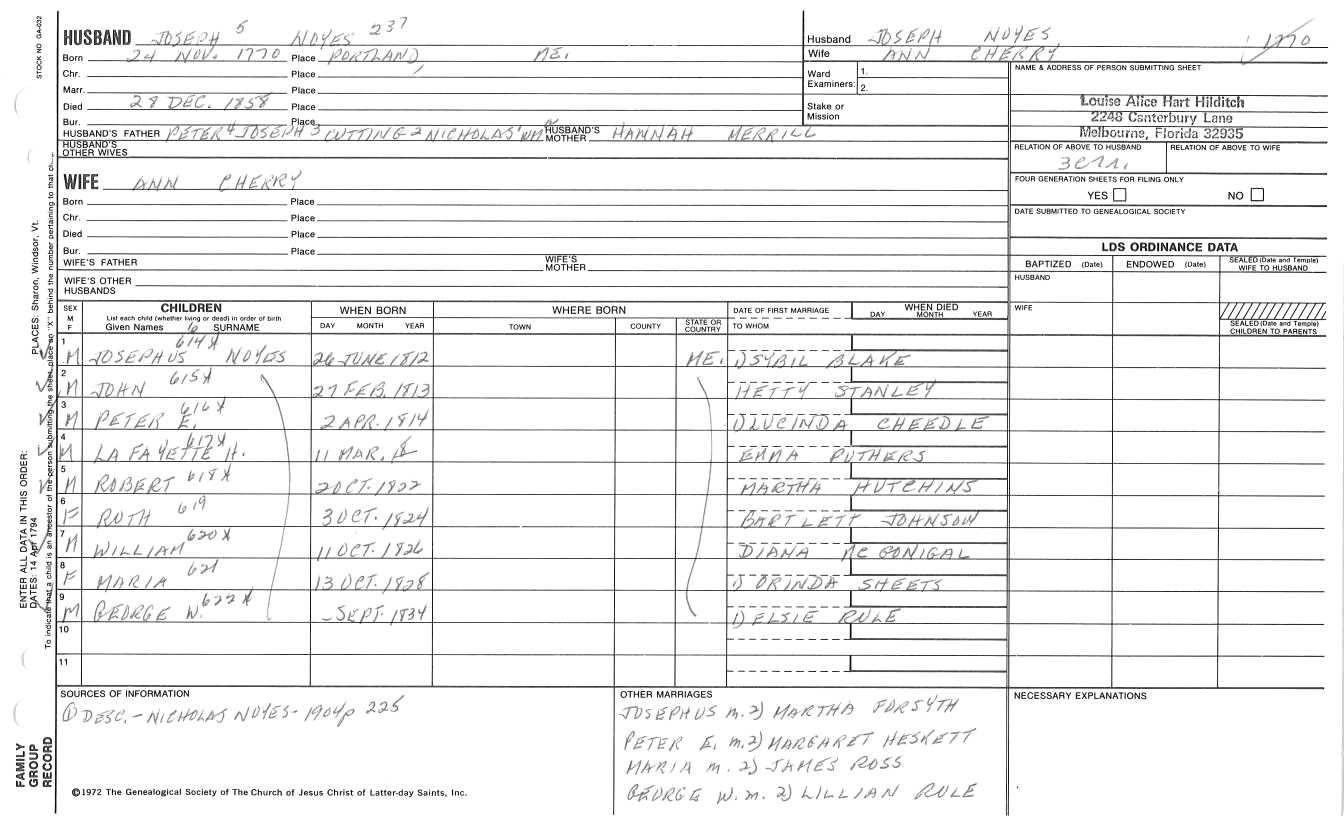 STOCK NO GA-032
HUSBAND JOSEPH 5 NOYES 237
Born 24 NOV. 1770 Place PORTLAND, ME.
Chr. Place
Marr. Place
Died 28 DEC. 1858 Place
Bur. Place
HUSBAND'S FATHER PETER 4 JOSEPH 3 CUTTING 2 NICHOLAS 1 HUSBAND'S MOTHER HANNAH MERRILL
HUSBAND'S OTHER WIVES
Husband JOSEPH NOYES 1770
Wife ANN CHERRY
Ward Examiners: 1. 2.
Stake or Mission
NAME & ADDRESS OF PERSON SUBMITTING SHEET
Louise Alice Hart Hilditch
2248 Canterbury Lane
Melbourne, Florida 32935
RELATION OF ABOVE TO HUSBAND RELATION OF ABOVE TO WIFE
FOUR GENERATION SHEETS FOR FILING ONLY
YES NO
DATE SUBMITTED TO GENEALOGICAL SOCIETY
WIFE ANN CHERRY
Born Place
Chr. Place
Died Place
Bur. Place
WIFE'S FATHER WIFE'S MOTHER
WIFE'S OTHER HUSBANDS
LDS ORDINANCE DATA
BAPTIZED (Date) ENDOWED (Date) SEALED (Date and Temple) WIFE TO HUSBAND
HUSBAND
WIFE
SEALED (Date and Temple) CHILDREN TO PARENTS
SEX M F
CHILDREN
List each child (whether living or dead) in order of birth
Given Names 6 SURNAME
WHEN BORN
DAY MONTH YEAR
WHERE BORN
TOWN COUNTY STATE OR COUNTRY
DATE OF FIRST MARRIAGE
TO WHOM
WHEN DIED
DAY MONTH YEAR
1 M JOSEPHUS 614X NOYES 26 JUNE 1812 ME. 1) SYBIL BLAKE
2 M JOHN 615X 27 FEB. 1813 HETTY STANLEY
3 M PETER E. 616X 2 APR. 1814 1) LUCINDA CHEEDLE
4 M LA FAYETTE H. 617X 11 MAR. 18 EMMA RUTHERS
5 M ROBERT 618X 2 OCT. 1822 MARTHA HUTCHINS
6 F RUTH 619 3 OCT. 1824 BARTLETT JOHNSON
7 M WILLIAM 620X 11 OCT. 1826 DIANA McGONIGAL
8 F MARIA 621 13 OCT. 1828 1) ORINDA SHEETS
9 M GEORGE W. 622X - SEPT. 1834 1) ELSIE RULE
10
11
SOURCES OF INFORMATION
① DESC. - NICHOLAS NOYES - 1904 p 225
OTHER MARRIAGES
JOSEPHUS m. 2) MARTHA FORSYTH
PETER E. m. 2) MARGARET HESKETT
MARIA m. 2) JAMES ROSS
GEORGE W. m. 2) LILLIAN RULE
NECESSARY EXPLANATIONS
©1972 The Genealogical Society of The Church of Jesus Christ of Latter-day Saints, Inc.
FAMILY GROUP RECORD
ENTER ALL DATA IN THIS ORDER:
DATES: 14 Apr 1794 PLACES: Sharon, Windsor, Vt.
To indicate that a child is an ancestor of the person submitting the sheet, place an "X" behind the number pertaining to that